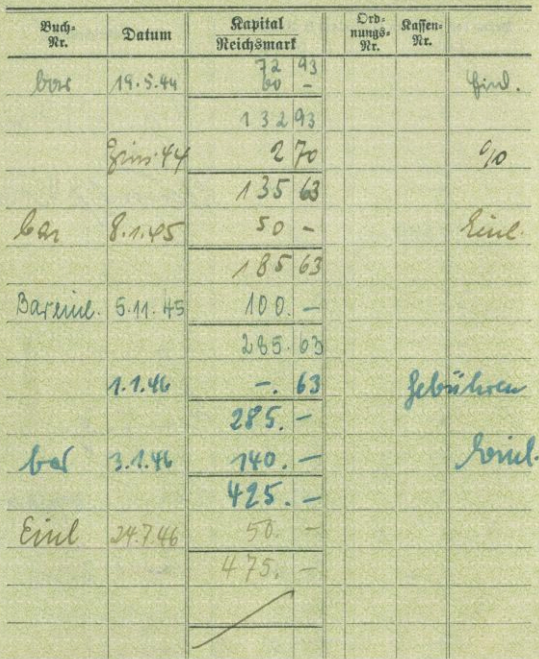 Buch-Nr. Datum Kapital Reichsmark Ord-nungs-Nr. Kassen-Nr.
72 93
bar 19.5.44 60 – Einl.
132 93
Zins 44 2 70 %
135 63
bar 8.1.45 50 – Einl.
185 63
Bareinl. 5.11.45 100. –
285. 63
1.1.46 –. 63 Gebühren
285. –
bar 3.1.46 140. – Einl.
425. –
Einl 24.7.46 50. –
475. –